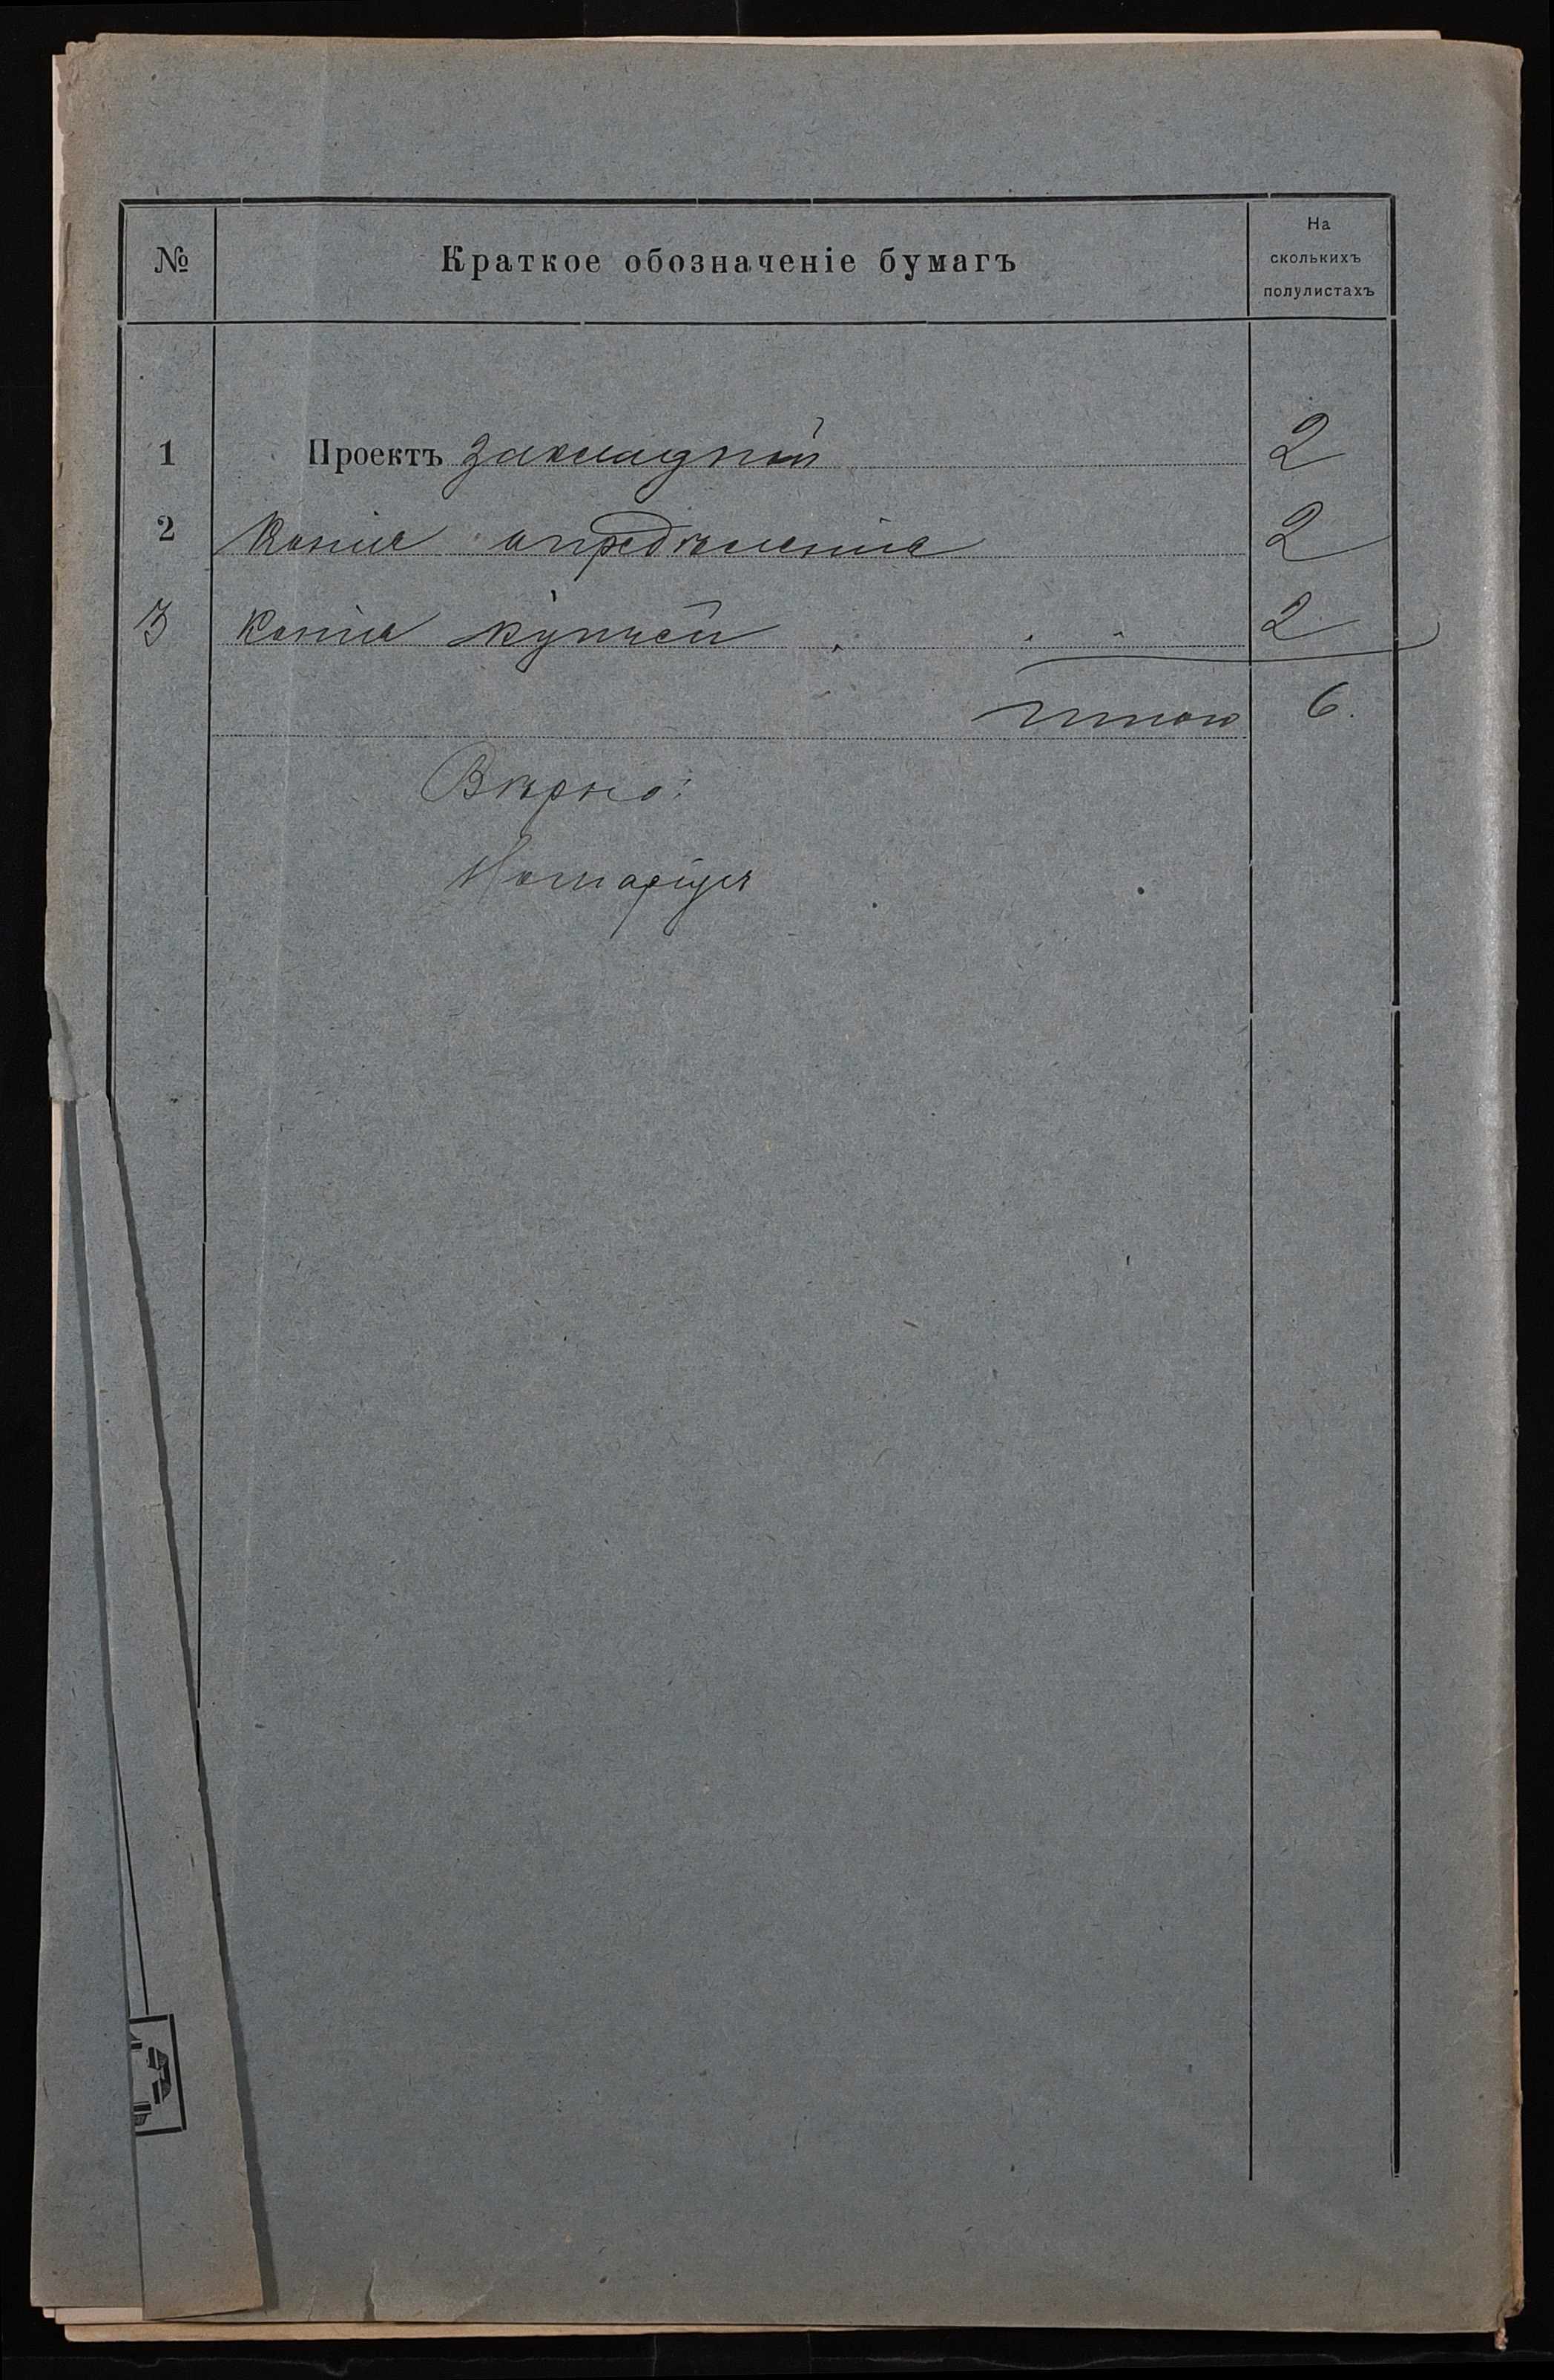 № Краткое обозначеніе бумагъ На сколькихъ полулистахъ
1 Проектъ закладной 2
2 Копія опредѣленія 2
3 Копія купчей 2
Итого 6.
Вѣрно:
Нотаріусъ